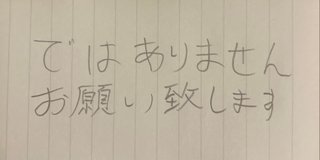 ではありません
お願い致します